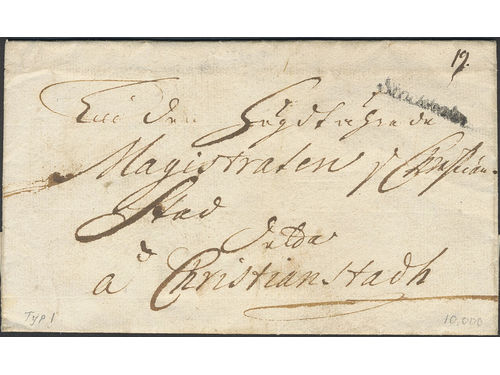 19.
Till den Högdtährede
Magistraten j Christian-
Stad
â Christianstadh
TYP 1
10.000